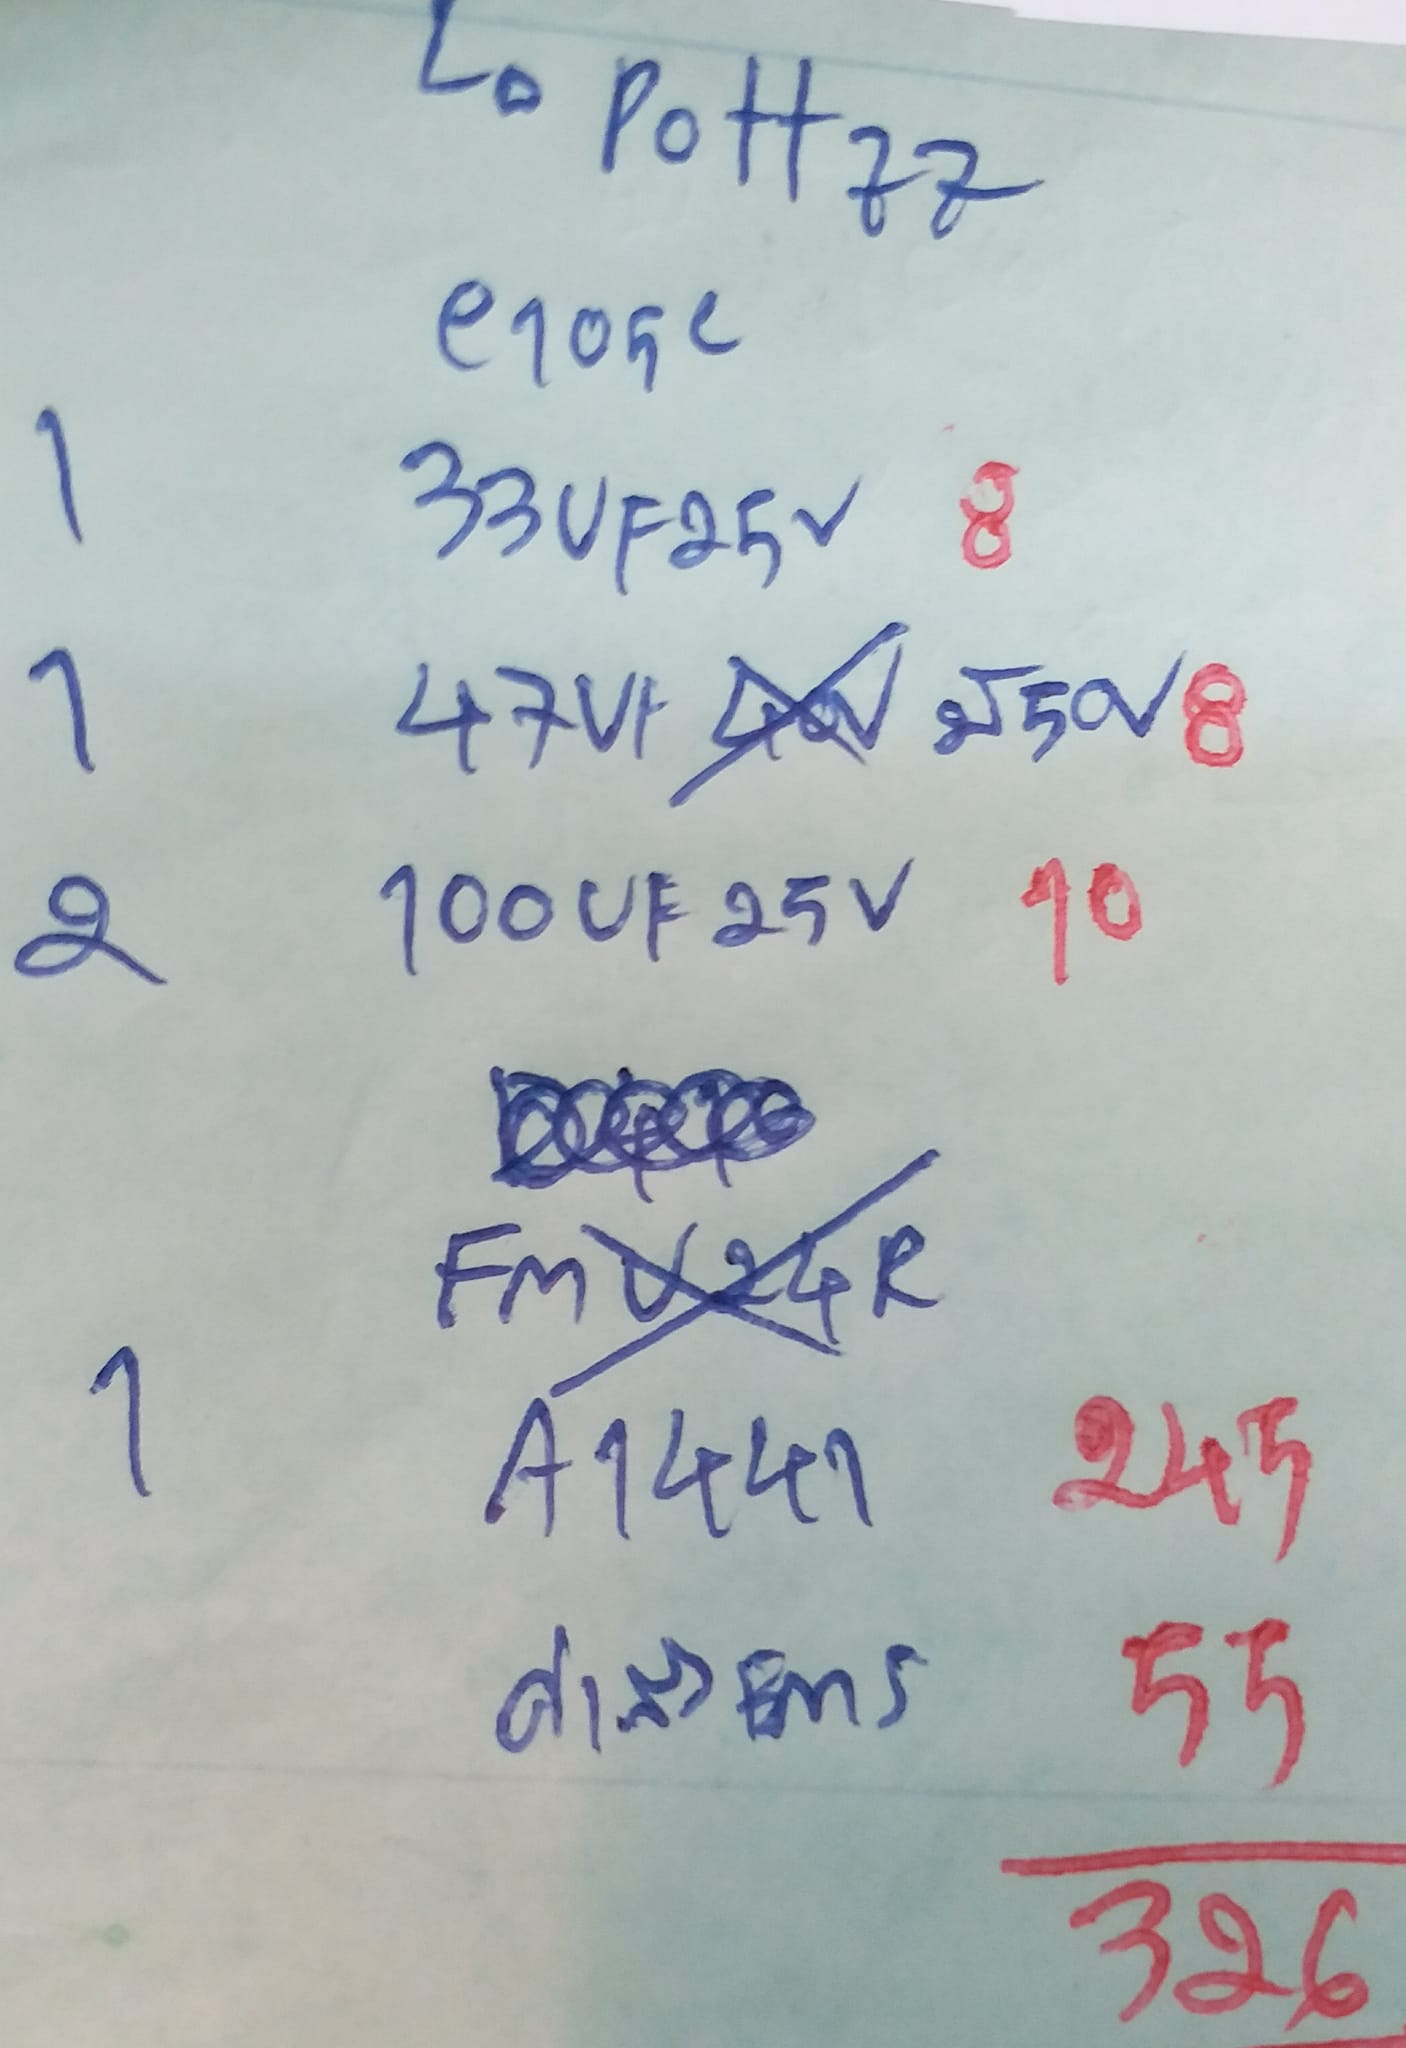 Lo PoHzz
e105c
1 33UF25V 8
1 47UF 40V มี50V 8
2 100UF 25V 10
FMV24R
1 A1441 245
ค่าส่ง EMS 55
326